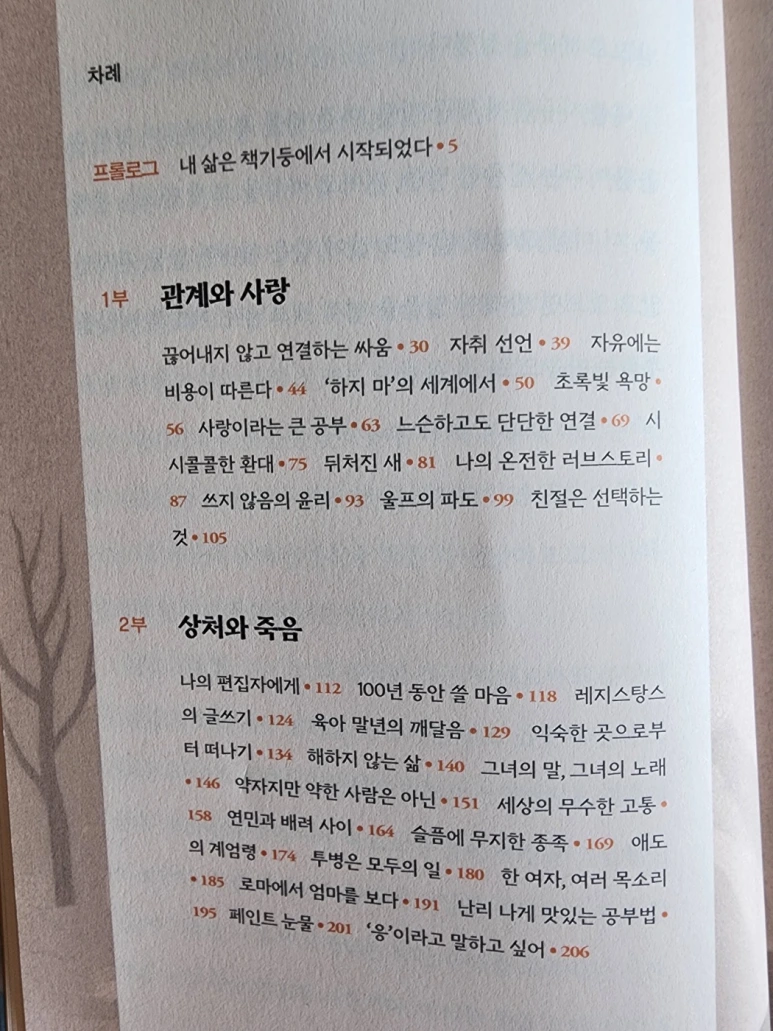 차례
프롤로그 내 삶은 책기둥에서 시작되었다 • 5
1부 관계와 사랑
끊어내지 않고 연결하는 싸움 • 30 자취 선언 • 39 자유에는
비용이 따른다 • 44 ‘하지 마’의 세계에서 • 50 초록빛 욕망 •
56 사랑이라는 큰 공부 • 63 느슨하고도 단단한 연결 • 69 시
시콜콜한 환대 • 75 뒤처진 새 • 81 나의 온전한 러브스토리 •
87 쓰지 않음의 윤리 • 93 울프의 파도 • 99 친절은 선택하는
것 • 105
2부 상처와 죽음
나의 편집자에게 • 112 100년 동안 쓸 마음 • 118 레지스탕스
의 글쓰기 • 124 육아 말년의 깨달음 • 129 익숙한 곳으로부
터 떠나기 • 134 해하지 않는 삶 • 140 그녀의 말, 그녀의 노래
• 146 약자지만 약한 사람은 아닌 • 151 세상의 무수한 고통 •
158 연민과 배려 사이 • 164 슬픔에 무지한 종족 • 169 애도
의 계엄령 • 174 투병은 모두의 일 • 180 한 여자, 여러 목소리
• 185 로마에서 엄마를 보다 • 191 난리 나게 맛있는 공부법 •
195 페인트 눈물 • 201 ‘응’이라고 말하고 싶어 • 206